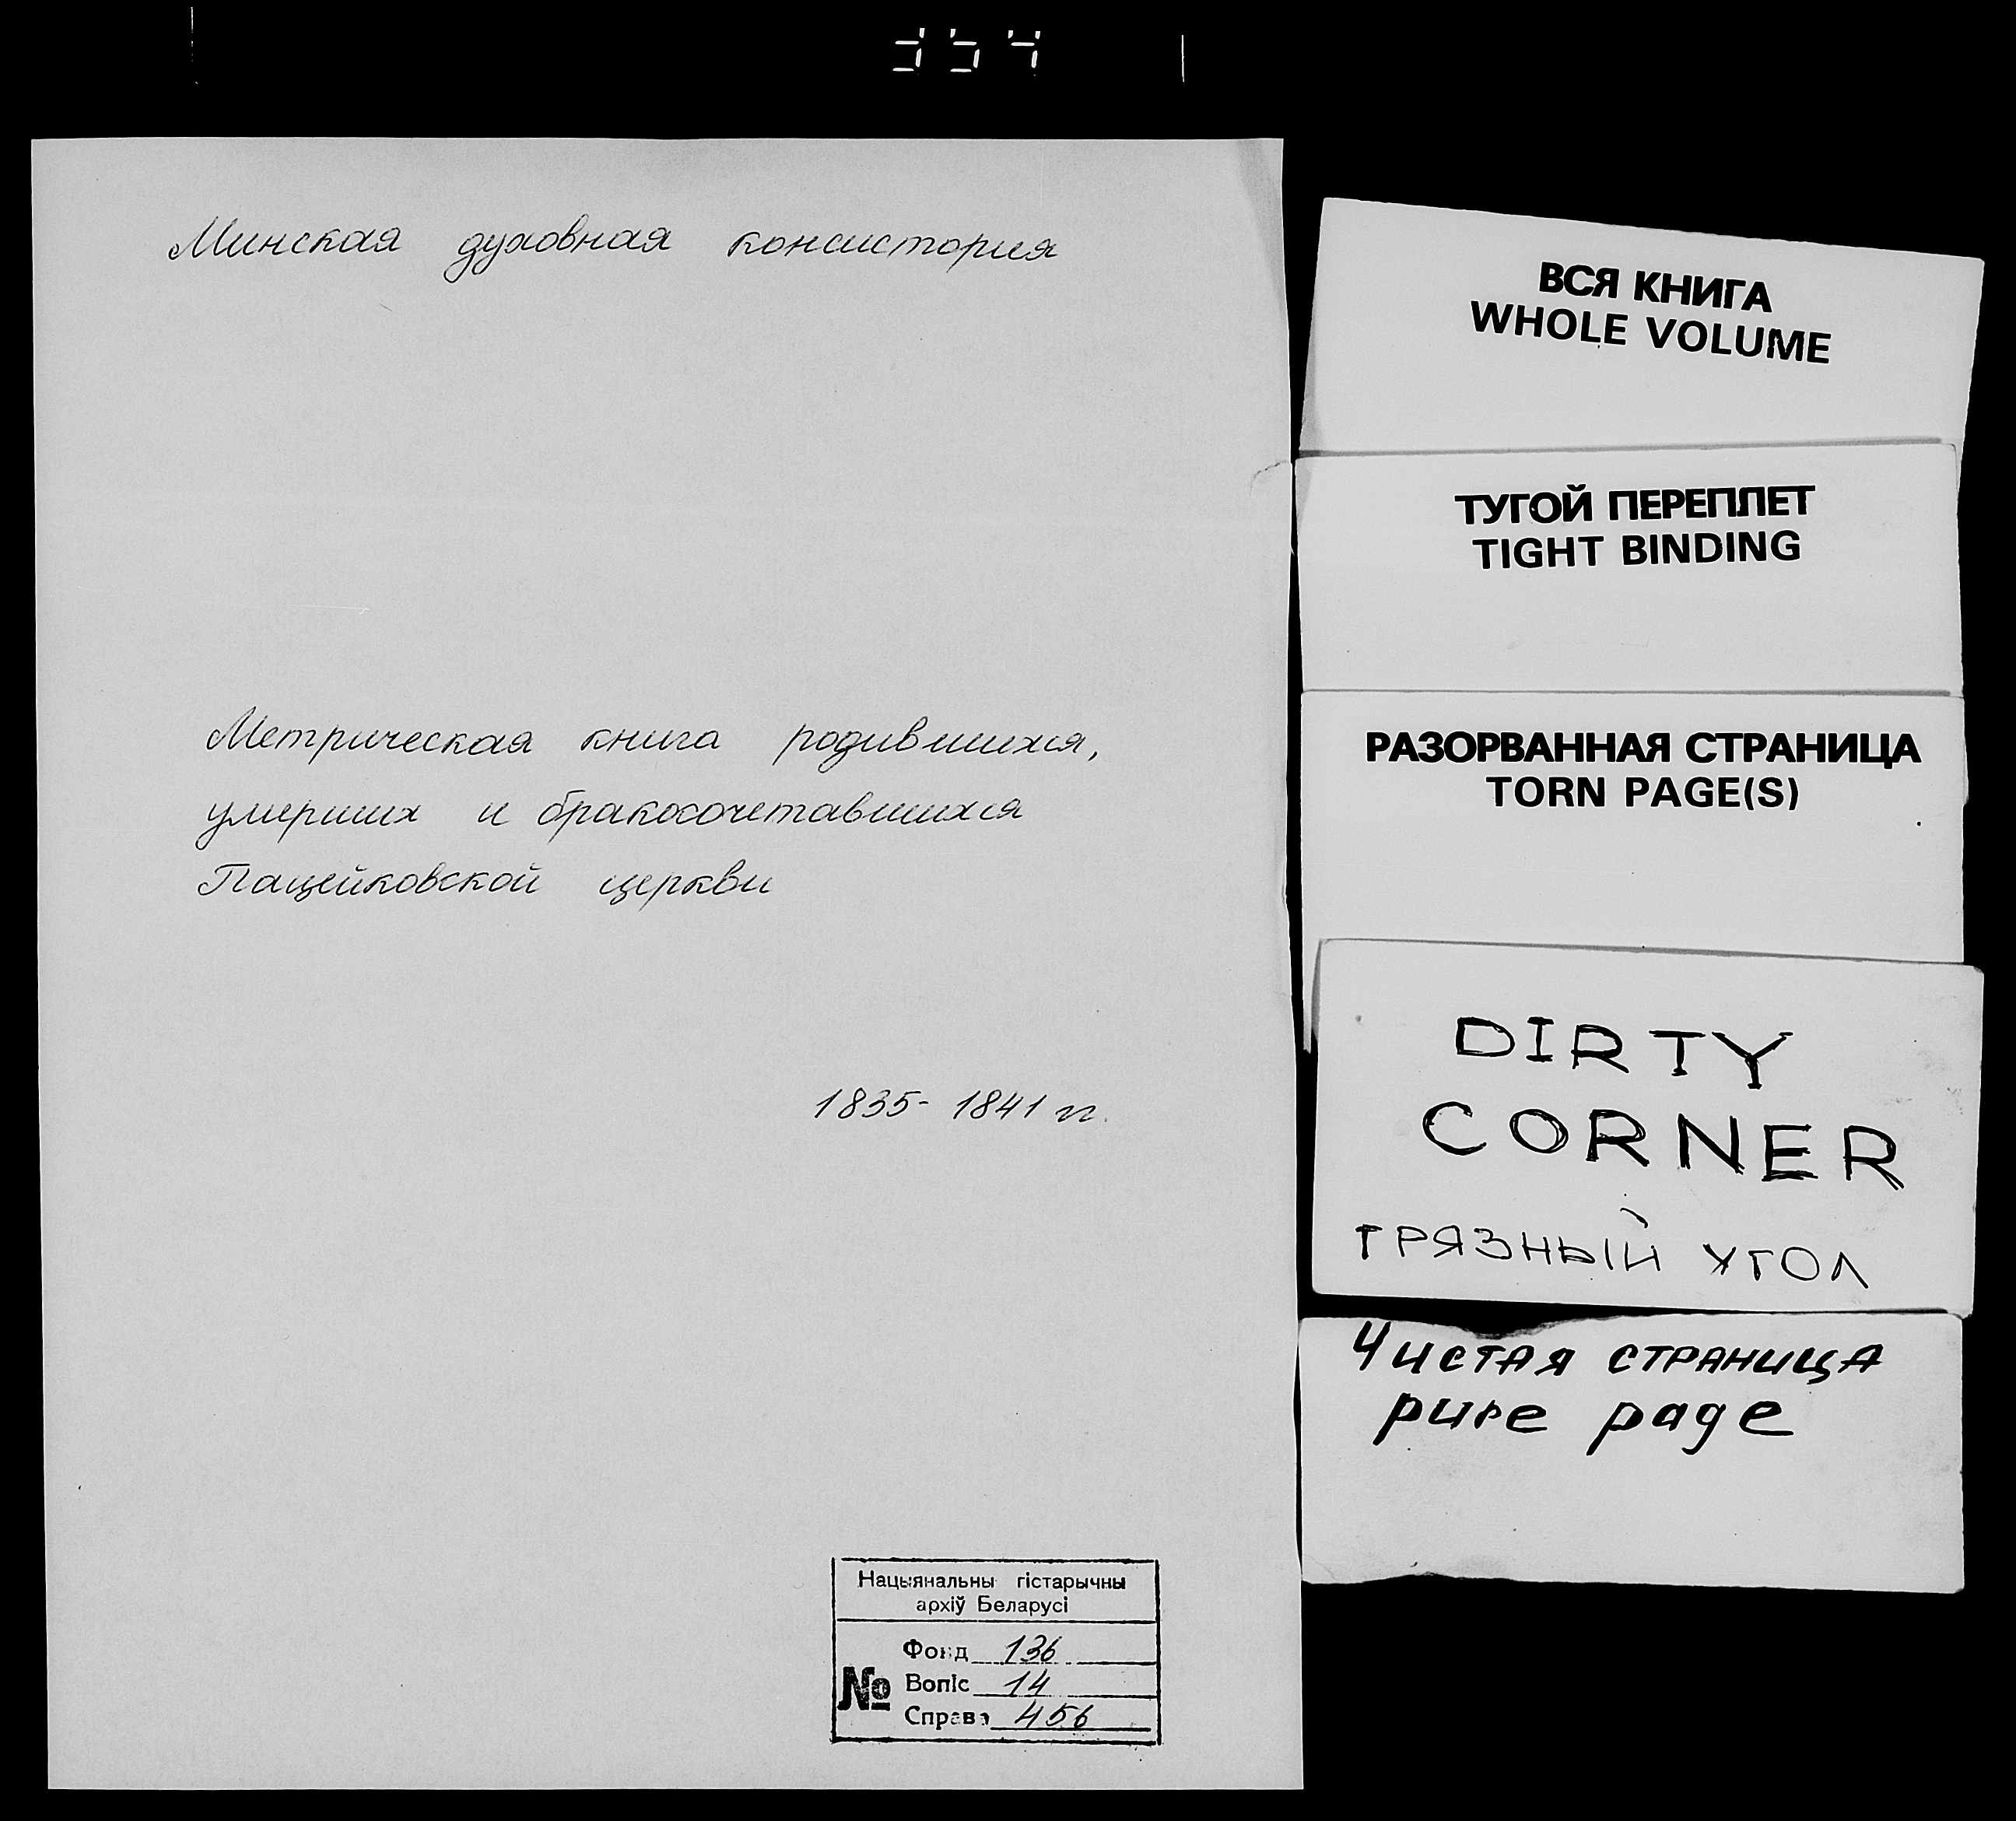 Минская духовная консистория
Метрическая книга родившихся,
умерших и бракосочетавшихся
Пацейковской церкви
1835- 1841 гг.
Нацыянальны гістарычны
архіў Беларусі
№
Фонд 136
Вопіс 14
Справа 456
ВСЯ КНИГА
WHOLE VOLUME
ТУГОЙ ПЕРЕПЛЕТ
TIGHT BINDING
РАЗОРВАННАЯ СТРАНИЦА
TORN PAGE(S)
DIRTY
CORNER
ГРЯЗНЫЙ УГОЛ
Чистая страница
pure page